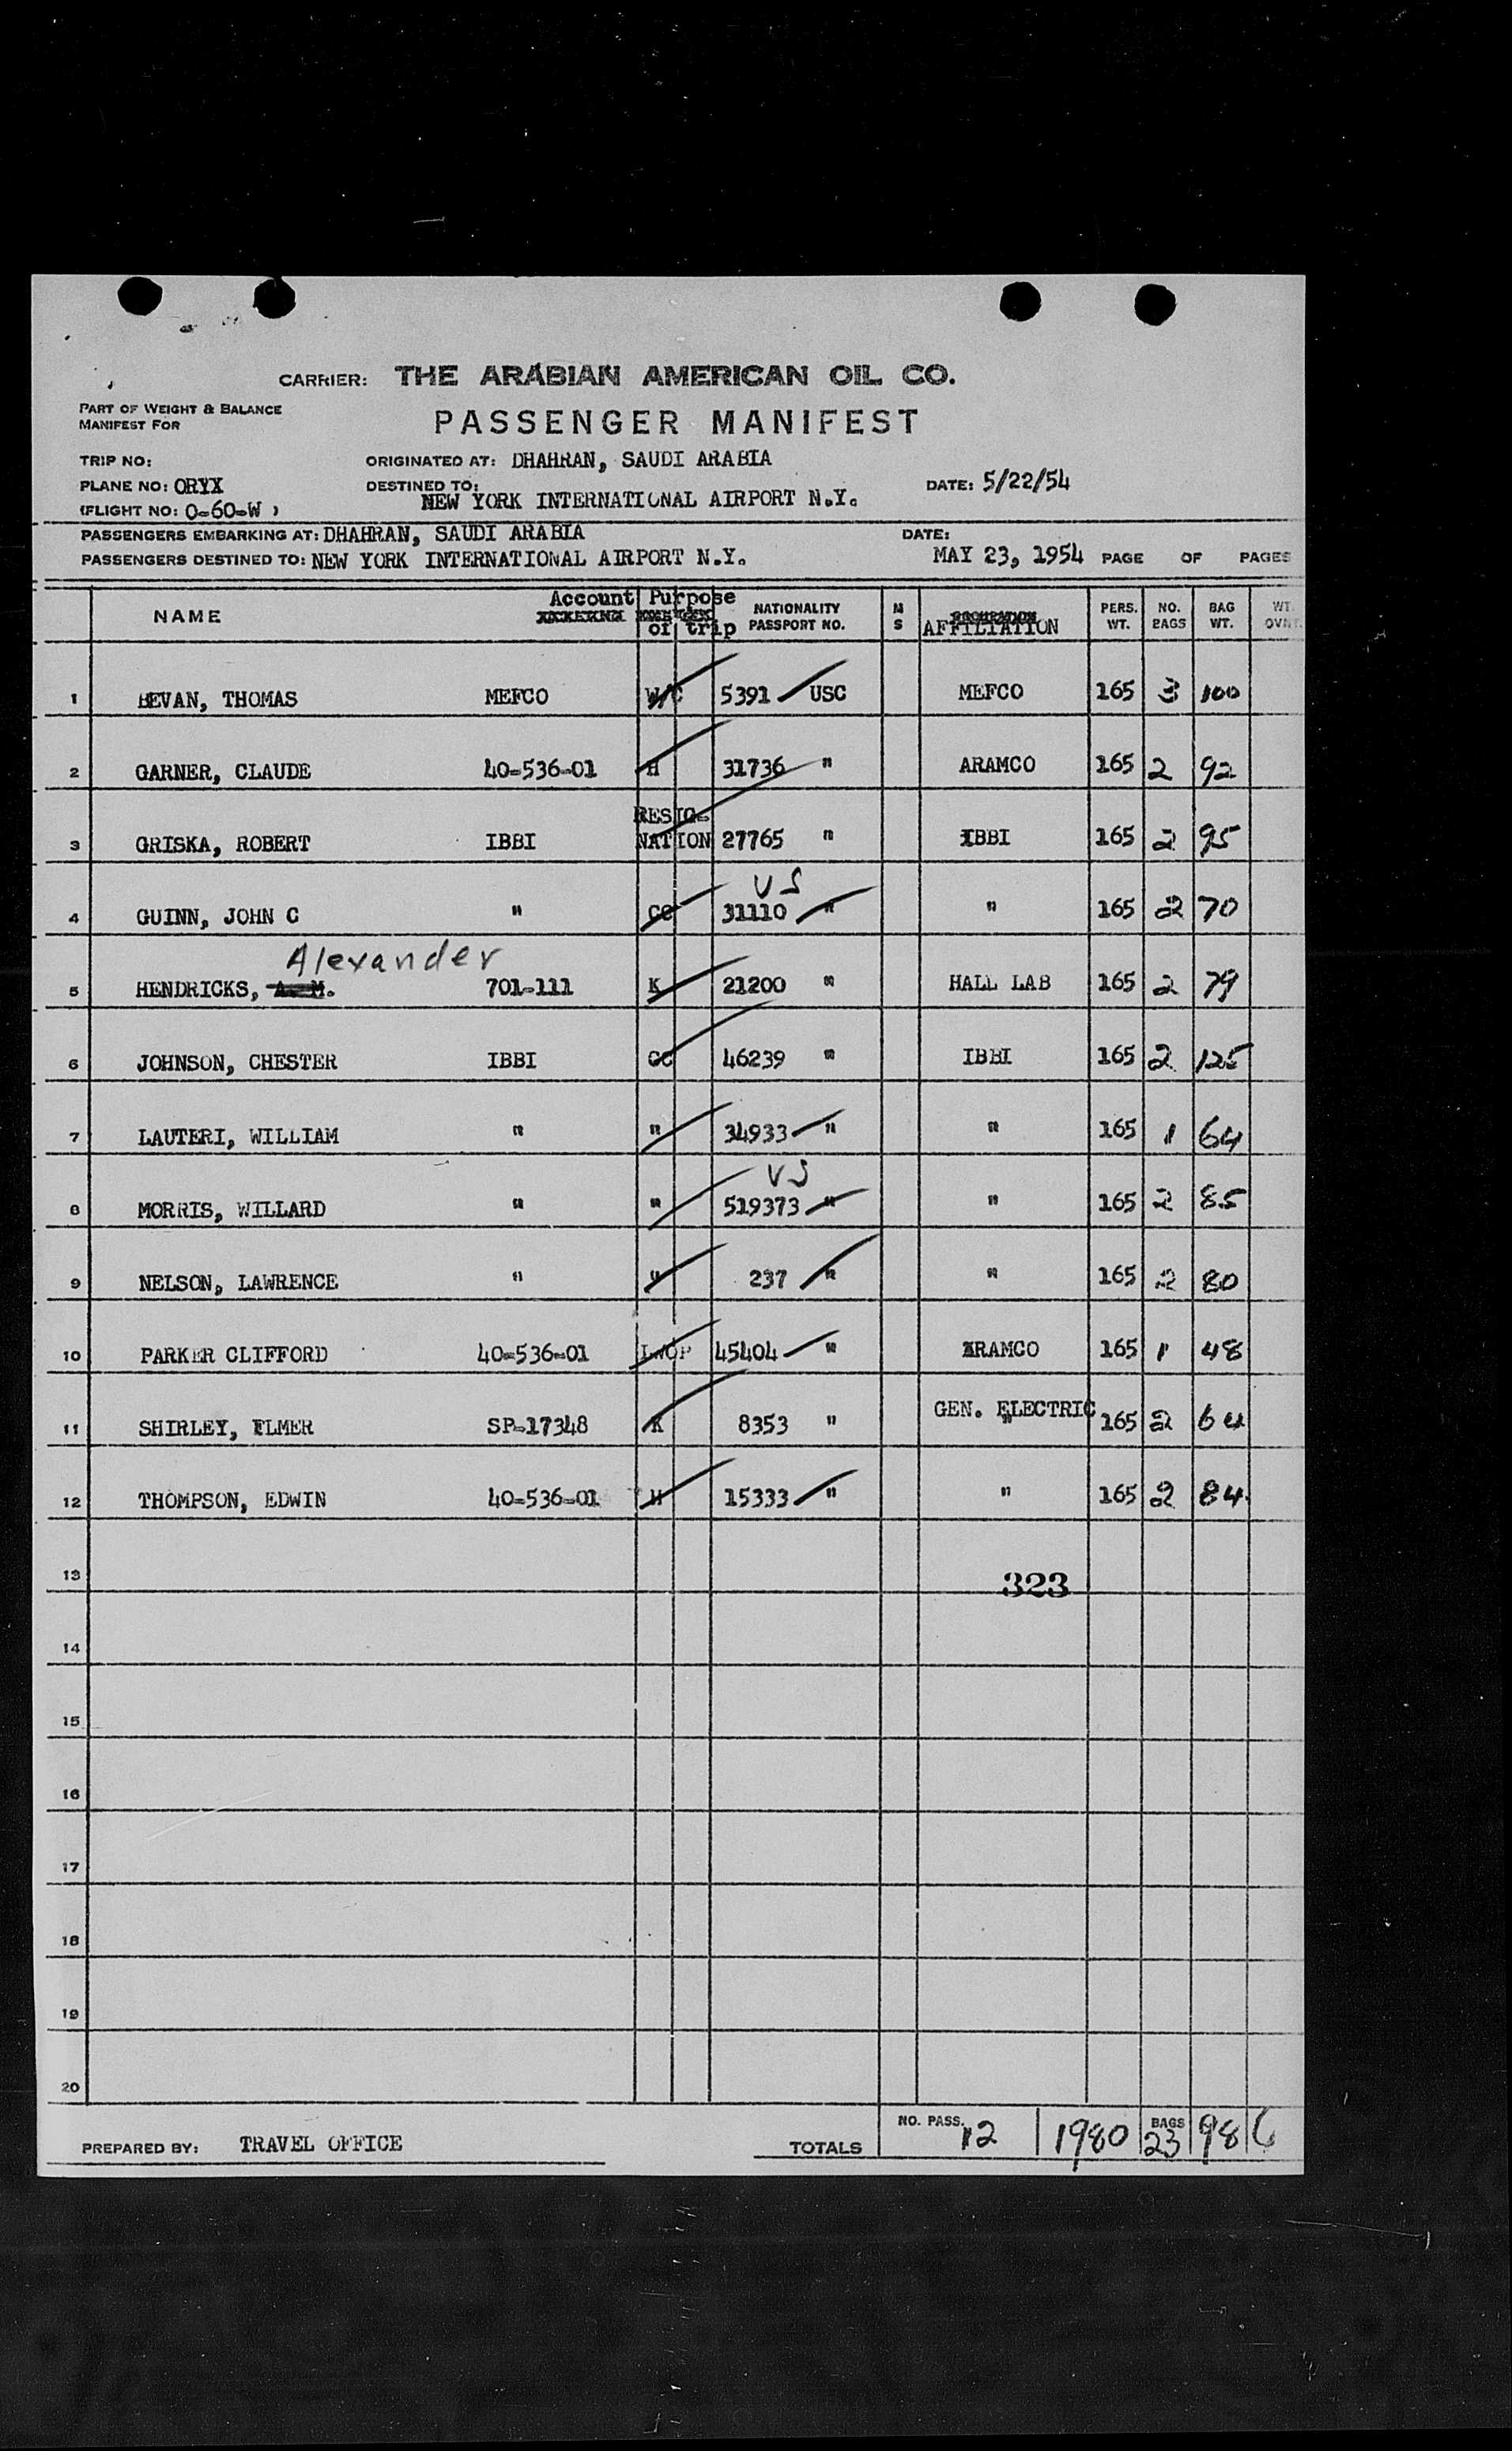 CARRIER: THE ARABIAN AMERICAN OIL CO.
PART OF WEIGHT & BALANCE
MANIFEST FOR
PASSENGER MANIFEST
TRIP NO:
ORIGINATED AT: DHAHRAN, SAUDI ARABIA
PLANE NO: ORYX
DESTINED TO: NEW YORK INTERNATIONAL AIRPORT N.Y.
DATE: 5/22/54
(FLIGHT NO: O-60-W )
PASSENGERS EMBARKING AT: DHAHRAN, SAUDI ARABIA
DATE:
PASSENGERS DESTINED TO: NEW YORK INTERNATIONAL AIRPORT N.Y. MAY 23, 1954 PAGE OF PAGES
NAME Account Purpose of trip NATIONALITY PASSPORT NO. M S AFFILIATION PERS. WT. NO. BAGS BAG WT. WT. OVNT.
1 BEVAN, THOMAS MEFCO W/C 5391 USC MEFCO 165 3 100
2 GARNER, CLAUDE 40-536-01 H 31736 " ARAMCO 165 2 92
3 GRISKA, ROBERT IBBI RESIG-NATION 27765 " IBBI 165 2 95
US
4 GUINN, JOHN C " CC 31110 " " 165 2 70
Alexander
5 HENDRICKS, A. M. 701-111 K 21200 " HALL LAB 165 2 79
6 JOHNSON, CHESTER IBBI CC 46239 " IBBI 165 2 125
7 LAUTERI, WILLIAM " " 34933 " " 165 1 64
US
8 MORRIS, WILLARD " " 519373 " " 165 2 85
9 NELSON, LAWRENCE " " 237 " " 165 2 80
10 PARKER CLIFFORD 40-536-01 LWOP 45404 " ARAMCO 165 1 48
11 SHIRLEY, ELMER SP-17348 K 8353 " GEN. ELECTRIC 165 2 64
12 THOMPSON, EDWIN 40-536-01 H 15333 " " 165 2 84
13
323
14
15
16
17
18
19
20
PREPARED BY: TRAVEL OFFICE TOTALS NO. PASS. 12 1980 BAGS 23 986